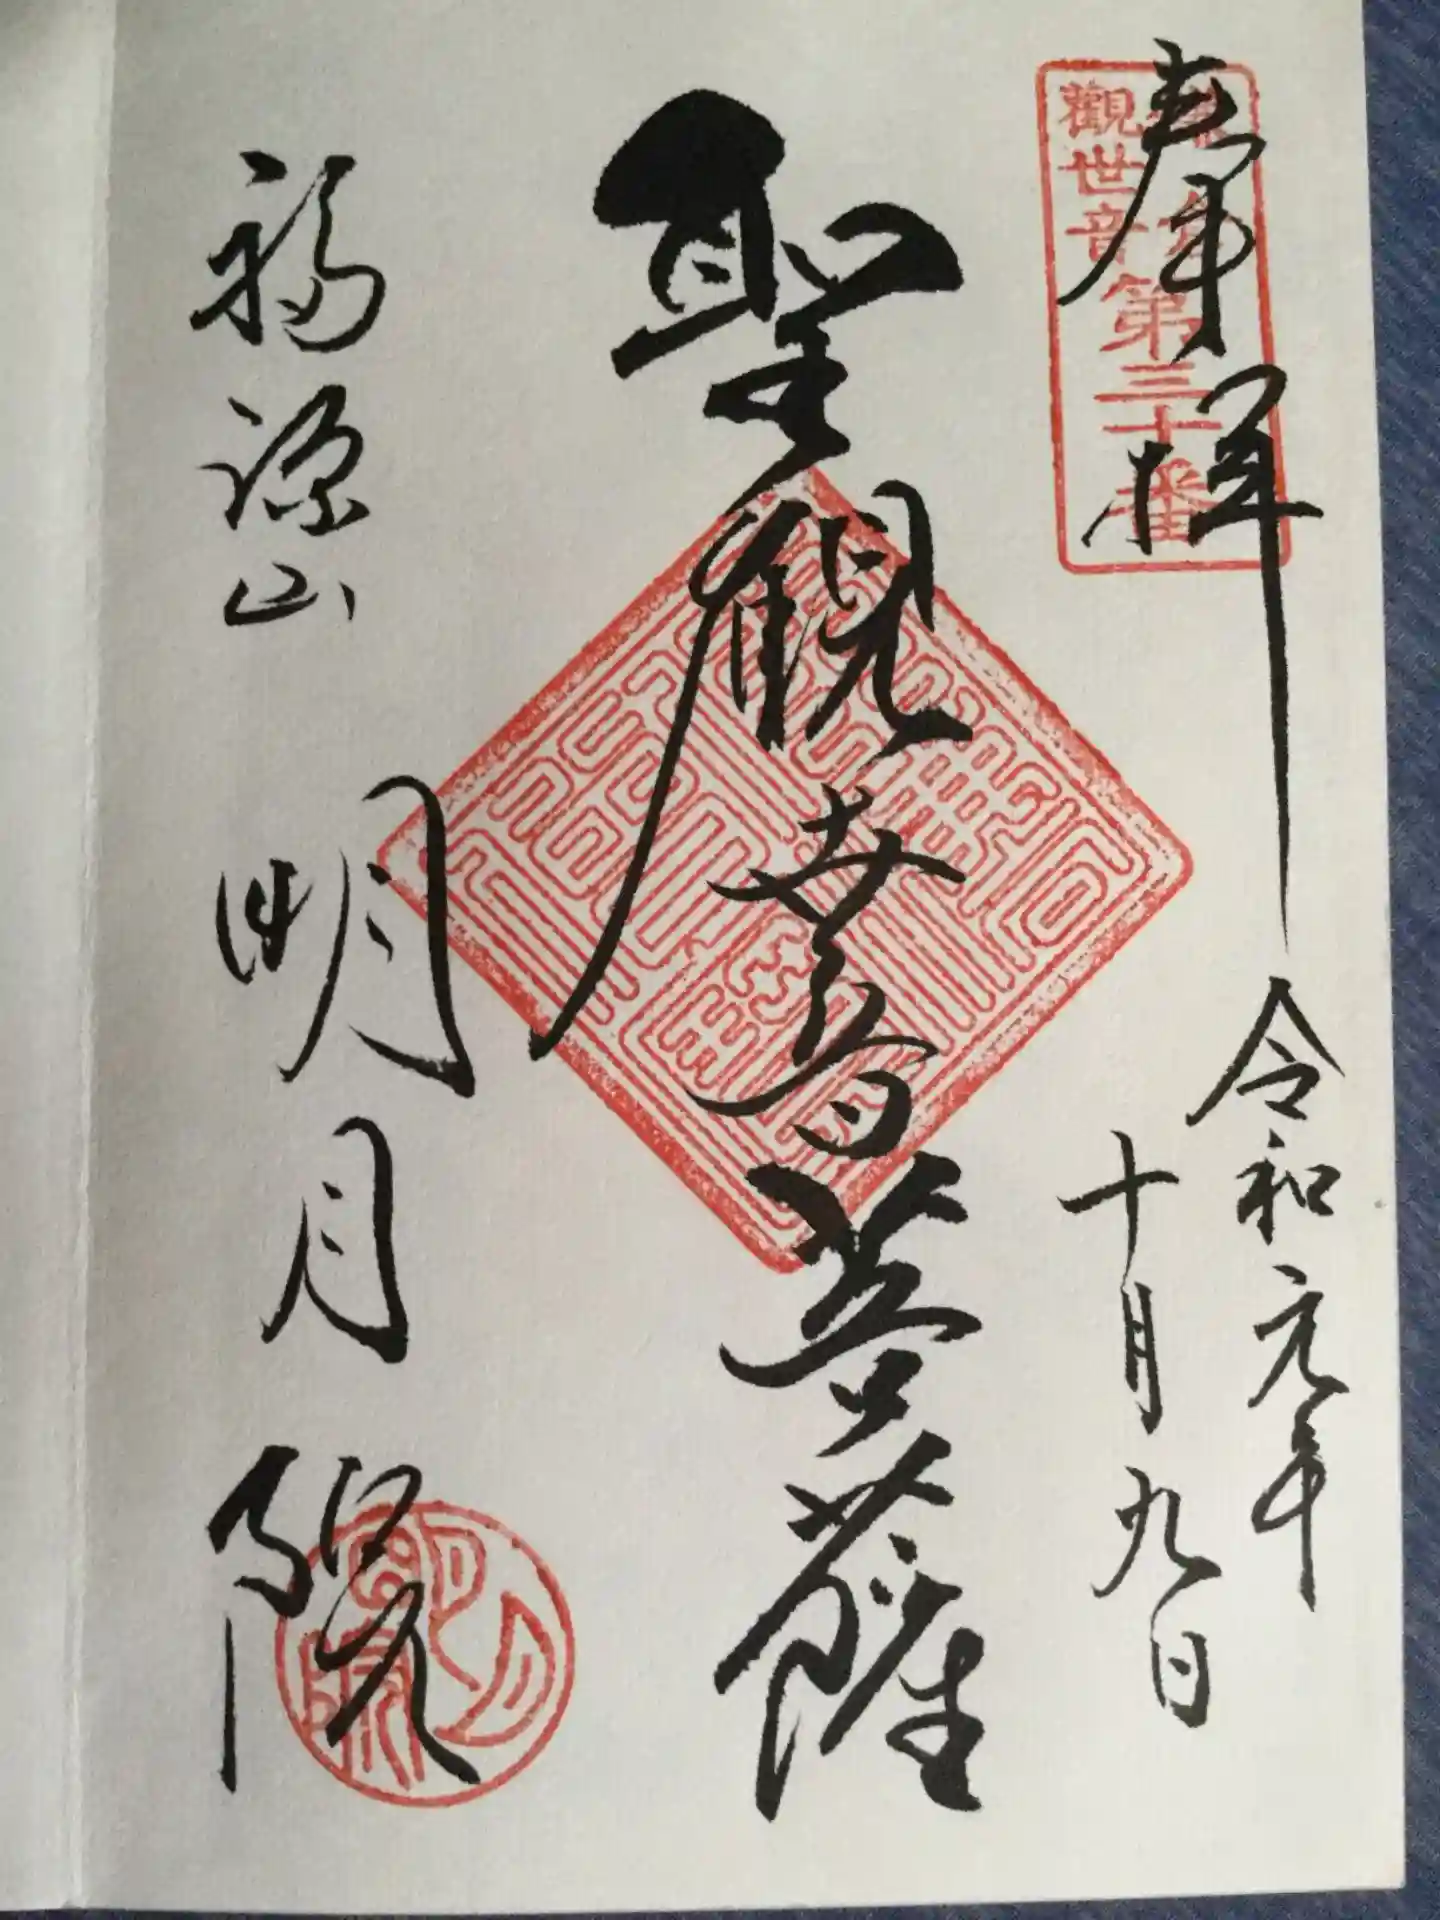 奉拝
鎌倉
觀世音
第三十番
令和元年
十月九日
聖観世音菩薩
福源山
明月院